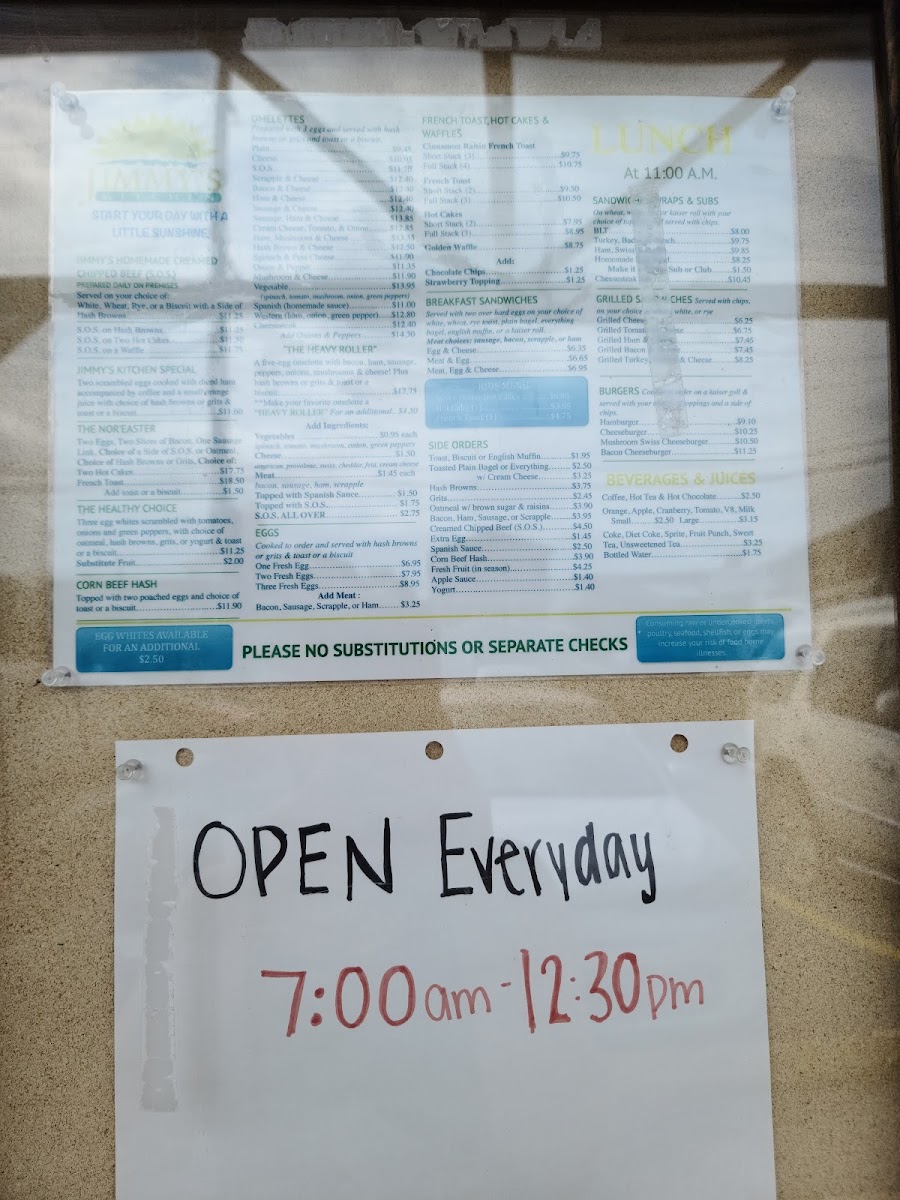 JIMMY'S
KITCHEN
START YOUR DAY WITH A
LITTLE SUNSHINE
JIMMY'S HOMEMADE CREAMED
CHIPPED BEEF (S.O.S.)
PREPARED DAILY ON PREMISES
Served on your choice of:
White, Wheat, Rye, or a Biscuit with a Side of
Hash Browns $11.25
S.O.S. on Hash Browns
S.O.S. on Two Hot Cakes
S.O.S. on a Waffle
JIMMY'S KITCHEN SPECIAL
Two scrambled eggs cooked with diced ham
accompanied by coffee and a small orange
juice with choice of hash browns or grits &
toast or a biscuit $11.60
THE NOR'EASTER
Two Eggs, Two Slices of Bacon, One Sausage
Link, Choice of a Side of S.O.S. or Oatmeal,
Choice of Hash Browns or Grits, Choice of:
Two Hot Cakes $17.75
French Toast $18.50
Add toast or a biscuit $1.50
THE HEALTHY CHOICE
Three egg whites scrambled with tomatoes,
onions and green peppers, with choice of
oatmeal, hash browns, grits, or yogurt & toast
or a biscuit $11.25
Substitute Fruit $2.00
CORN BEEF HASH
Topped with two poached eggs and choice of
toast or a biscuit $11.90
EGG WHITES AVAILABLE
FOR AN ADDITIONAL
$2.50
OMELETTES
Prepared with 3 eggs and served with hash
browns or grits and toast or a biscuit.
Plain $9.45
Cheese $10.95
S.O.S.
Scrapple & Cheese $12.40
Bacon & Cheese $12.40
Ham & Cheese $12.40
Sausage & Cheese $12.40
Sausage, Ham & Cheese $13.85
Cream Cheese, Tomato, & Onion $12.85
Ham, Mushroom & Cheese
Hash Brown & Cheese $12.50
Spinach & Feta Cheese $11.90
Onion & Peppers $11.35
Mushroom & Cheese $11.90
Vegetable $13.95
(spinach, tomato, mushroom, onion, green peppers)
Spanish (homemade sauce) $11.00
Western (ham, onion, green pepper) $12.80
Cheesesteak $12.40
Add Onions & Peppers $14.30
"THE HEAVY ROLLER"
A five-egg omelette with bacon, ham, sausage,
peppers, onions, mushrooms & cheese! Plus
hash browns or grits & toast or a
biscuit $17.75
**Make your favorite omelette a
"HEAVY ROLLER" For an additional. $4.50
Add Ingredients:
Vegetables $0.95 each
spinach, tomato, mushroom, onion, green peppers
Cheese $1.50
american, provolone, swiss, cheddar, feta, cream cheese
Meat $1.45 each
bacon, sausage, ham, scrapple
Topped with Spanish Sauce $1.50
Topped with S.O.S. $1.75
S.O.S. ALL OVER $2.75
EGGS
Cooked to order and served with hash browns
or grits & toast or a biscuit
One Fresh Egg $6.95
Two Fresh Eggs $7.95
Three Fresh Eggs $8.95
Add Meat :
Bacon, Sausage, Scrapple, or Ham $3.25
FRENCH TOAST, HOT CAKES &
WAFFLES
Cinnamon Raisin French Toast
Short Stack (3) $9.75
Full Stack (4) $10.75
French Toast
Short Stack (2) $9.50
Full Stack (3) $10.50
Hot Cakes
Short Stack (2) $7.95
Full Stack (3) $8.95
Golden Waffle $8.75
Add:
Chocolate Chips $1.25
Strawberry Topping $1.25
BREAKFAST SANDWICHES
Served with two over hard eggs on your choice of
white, wheat, rye toast, plain bagel, everything
bagel, english muffin, or a kaiser roll.
Meat choices: sausage, bacon, scrapple, or ham
Egg & Cheese $6.35
Meat & Egg $6.65
Meat, Egg & Cheese $6.95
SIDE ORDERS
Toast, Biscuit or English Muffin $1.95
Toasted Plain Bagel or Everything $2.50
w/ Cream Cheese $3.25
Hash Browns $3.75
Grits $2.45
Oatmeal w/ brown sugar & raisins $3.90
Bacon, Ham, Sausage, or Scrapple $3.95
Creamed Chipped Beef (S.O.S.) $4.50
Extra Egg $1.45
Spanish Sauce $2.50
Corn Beef Hash $3.90
Fresh Fruit (in season) $4.25
Apple Sauce $1.40
Yogurt $1.40
LUNCH
At 11:00 A.M.
SANDWICHES WRAPS & SUBS
On wheat, or kaiser roll with your
choice of served with chips.
BLT $8.00
Turkey, $9.75
Ham, Swiss $9.85
Homemade $8.25
Make it Sub or Club $1.50
Cheesesteak $10.45
GRILLED SANDWICHES Served with chips,
on your choice white, or rye
Grilled Cheese $6.25
Grilled Tomato Cheese $6.75
Grilled Ham & $7.45
Grilled Bacon $7.45
Grilled Turkey, & Cheese $8.25
BURGERS Cooked to order on a kaiser roll &
served with your toppings and a side of
chips.
Hamburger $9.10
Cheeseburger $10.25
Mushroom Swiss Cheeseburger $10.50
Bacon Cheeseburger $11.25
BEVERAGES & JUICES
Coffee, Hot Tea & Hot Chocolate $2.50
Orange, Apple, Cranberry, Tomato, V8, Milk
Small $2.50 Large $3.15
Coke, Diet Coke, Sprite, Fruit Punch, Sweet
Tea, Unsweetened Tea $3.25
Bottled Water $1.75
PLEASE NO SUBSTITUTIONS OR SEPARATE CHECKS
Consuming raw or undercooked meats,
poultry, seafood, shellfish or eggs may
increase your risk of food borne
illnesses.
OPEN Everyday
7:00am-12:30pm